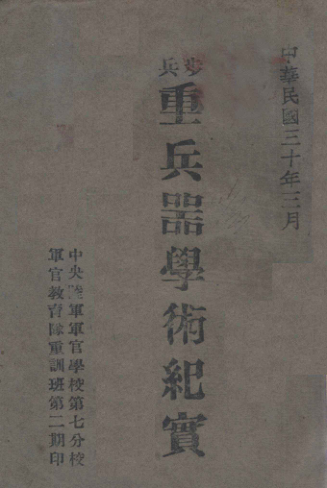 中華民國三十年三月
步兵
重兵器學術紀實
中央陸軍軍官學校第七分校
軍官教育隊重訓班第二期印